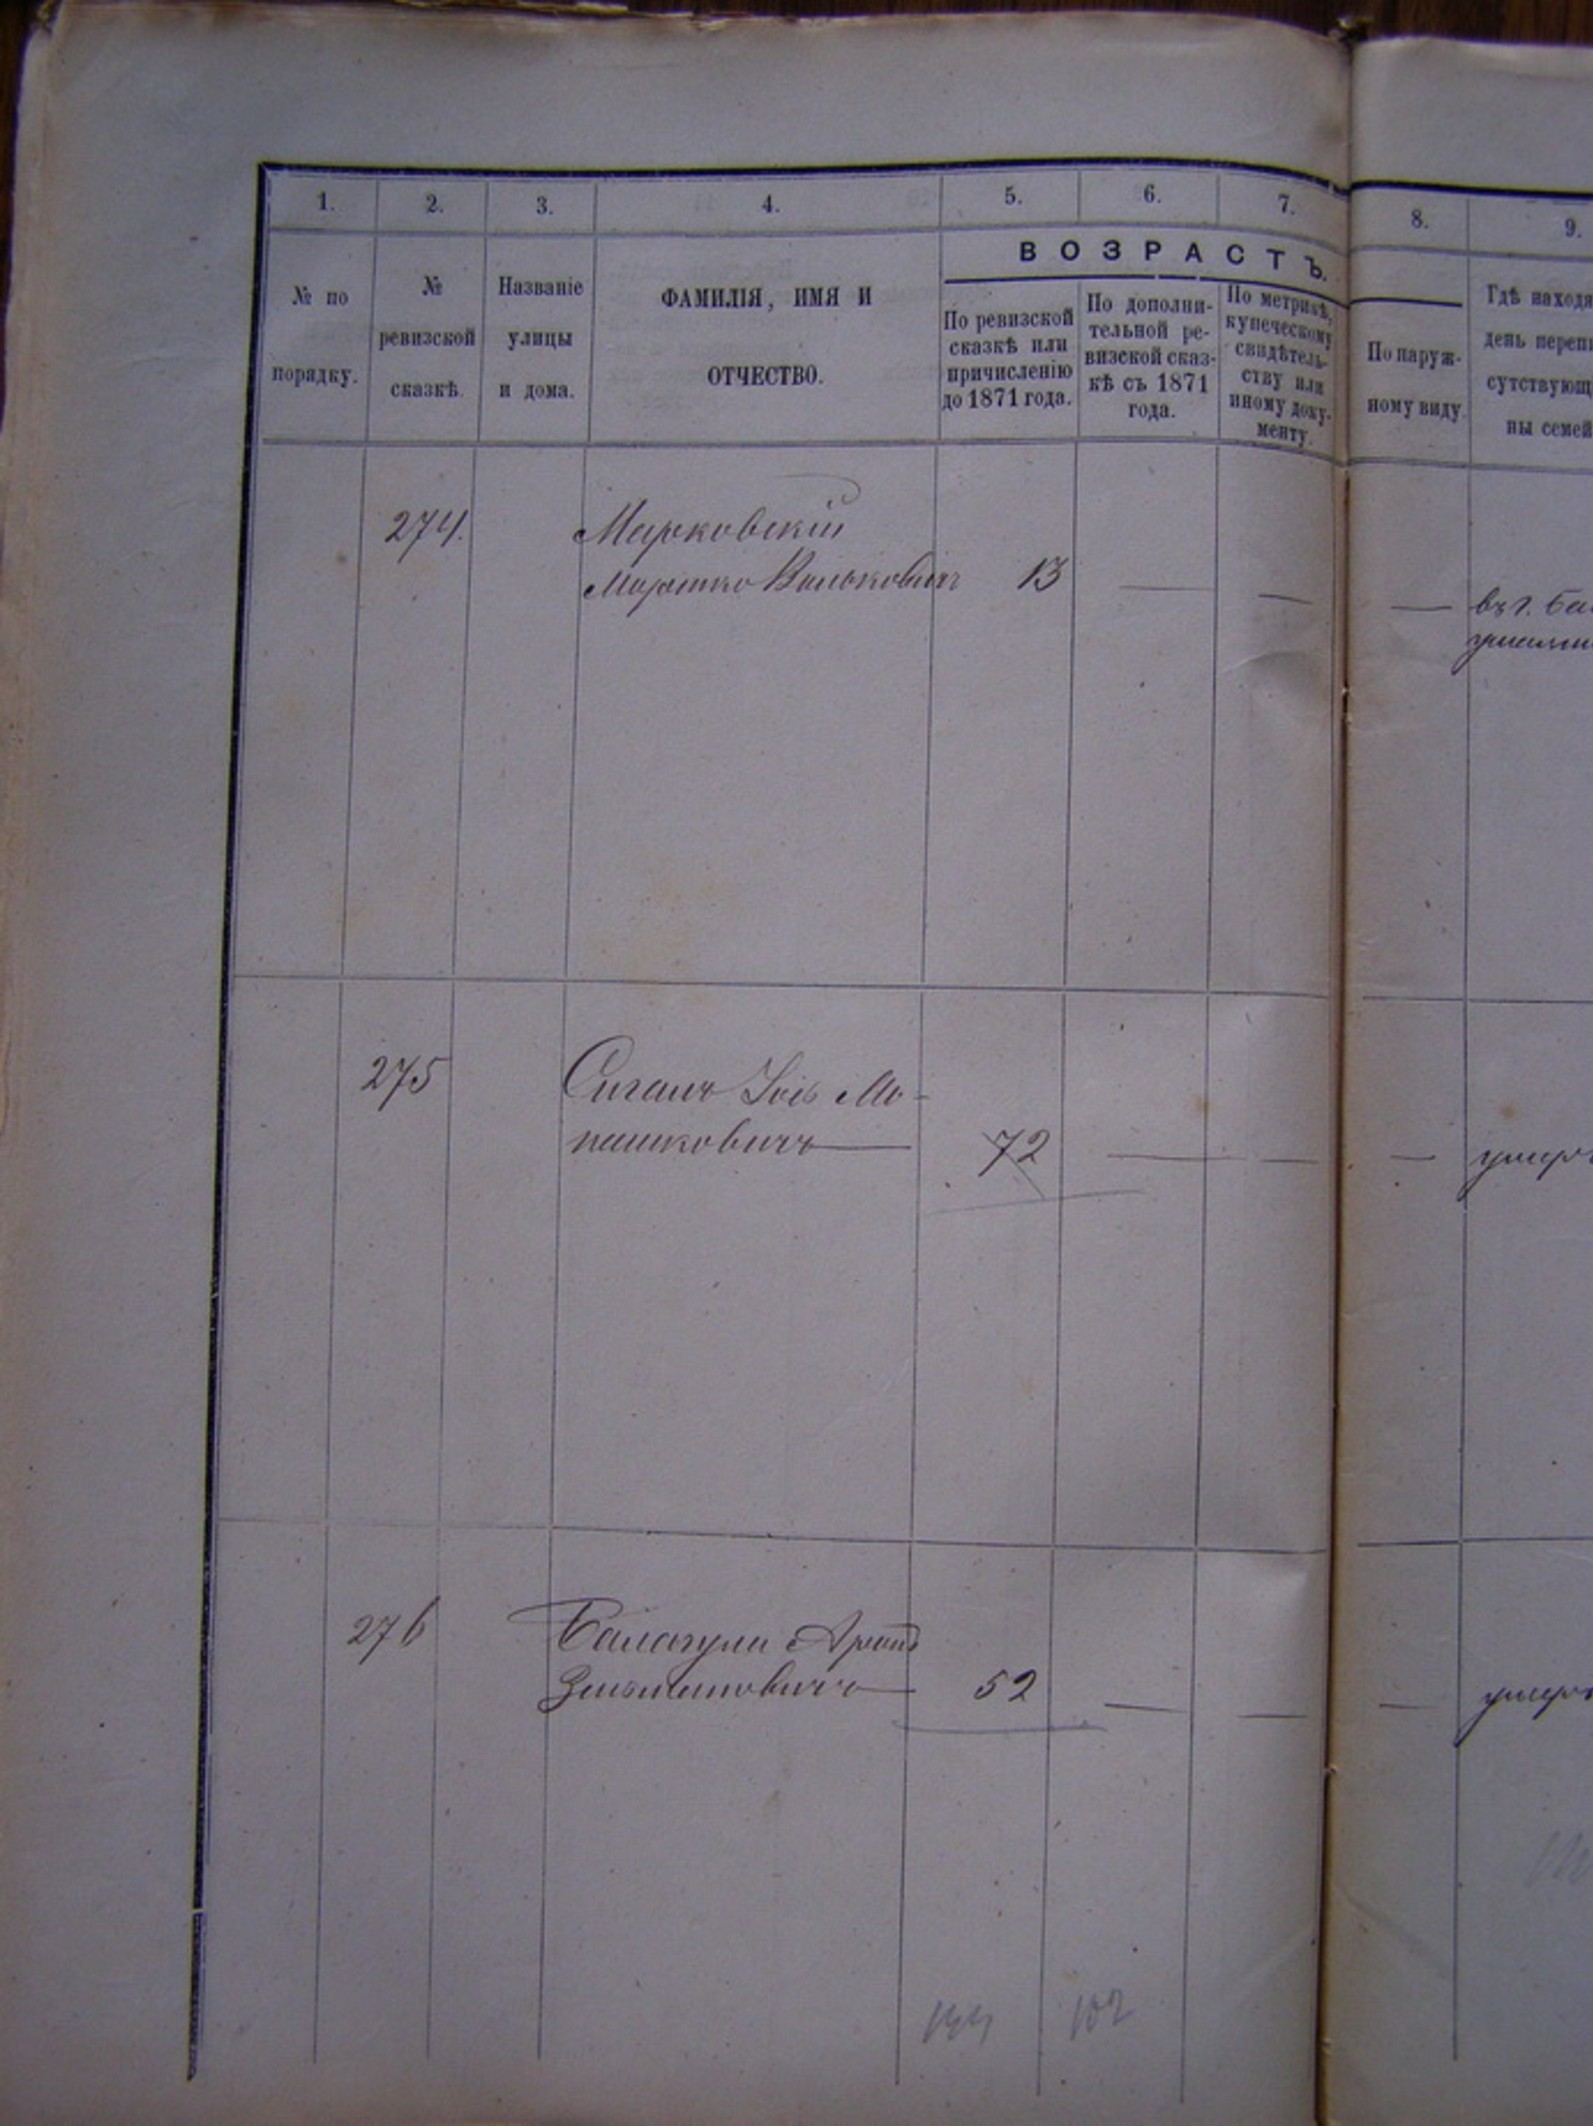 1. 2. 3. 4. 5. 6. 7. 8. 9.
ВОЗРАСТЪ.
№ по порядку.
№ ревизской сказкѣ.
Названіе улицы и дома.
ФАМИЛІЯ, ИМЯ И
ОТЧЕСТВО.
По ревизской
сказкѣ или
причисленію
до 1871 года.
По дополни-
тельной ре-
визской сказ-
кѣ съ 1871
года.
По метрикѣ,
купеческому
свидѣтель-
ству или
иному доку-
менту.
По наруж-
ному виду.
Гдѣ находя
день перепи
сутствующ
ны семей
274. Марковскій
Мартко Вольковичъ 13 — — — въ г.
275 Сиганъ Іось Мо-
пашковичъ 72 — — — умеръ
276 Балагула Аронъ
Зельмановичъ 52 — — — умеръ
102